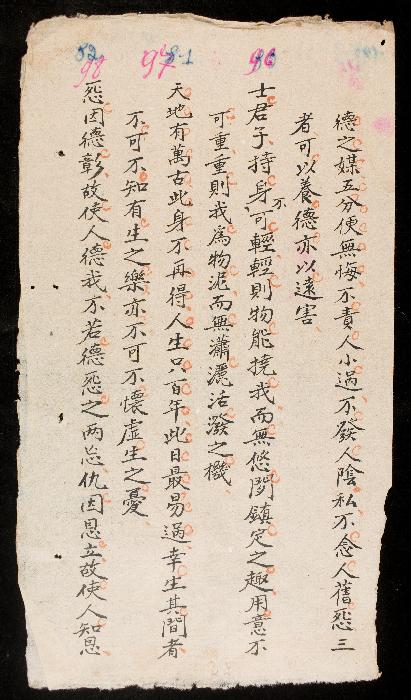 德之媒五分便無悔不責人小過不發人陰私不念人舊怨三
者可以養德亦以遠害
士君子持身不可輕輕則物能撓我而無悠閑鎮定之趣用意不
可重重則我為物泥而無瀟灑活潑之機
天地有萬古此身不再得人生只百年此日最易過幸生其間者
不可不知有生之樂亦不可不懷虛生之憂
怨因德彰故使人德我不若德怨之两忘仇因恩立故使人知恩
96
97
81
98
82